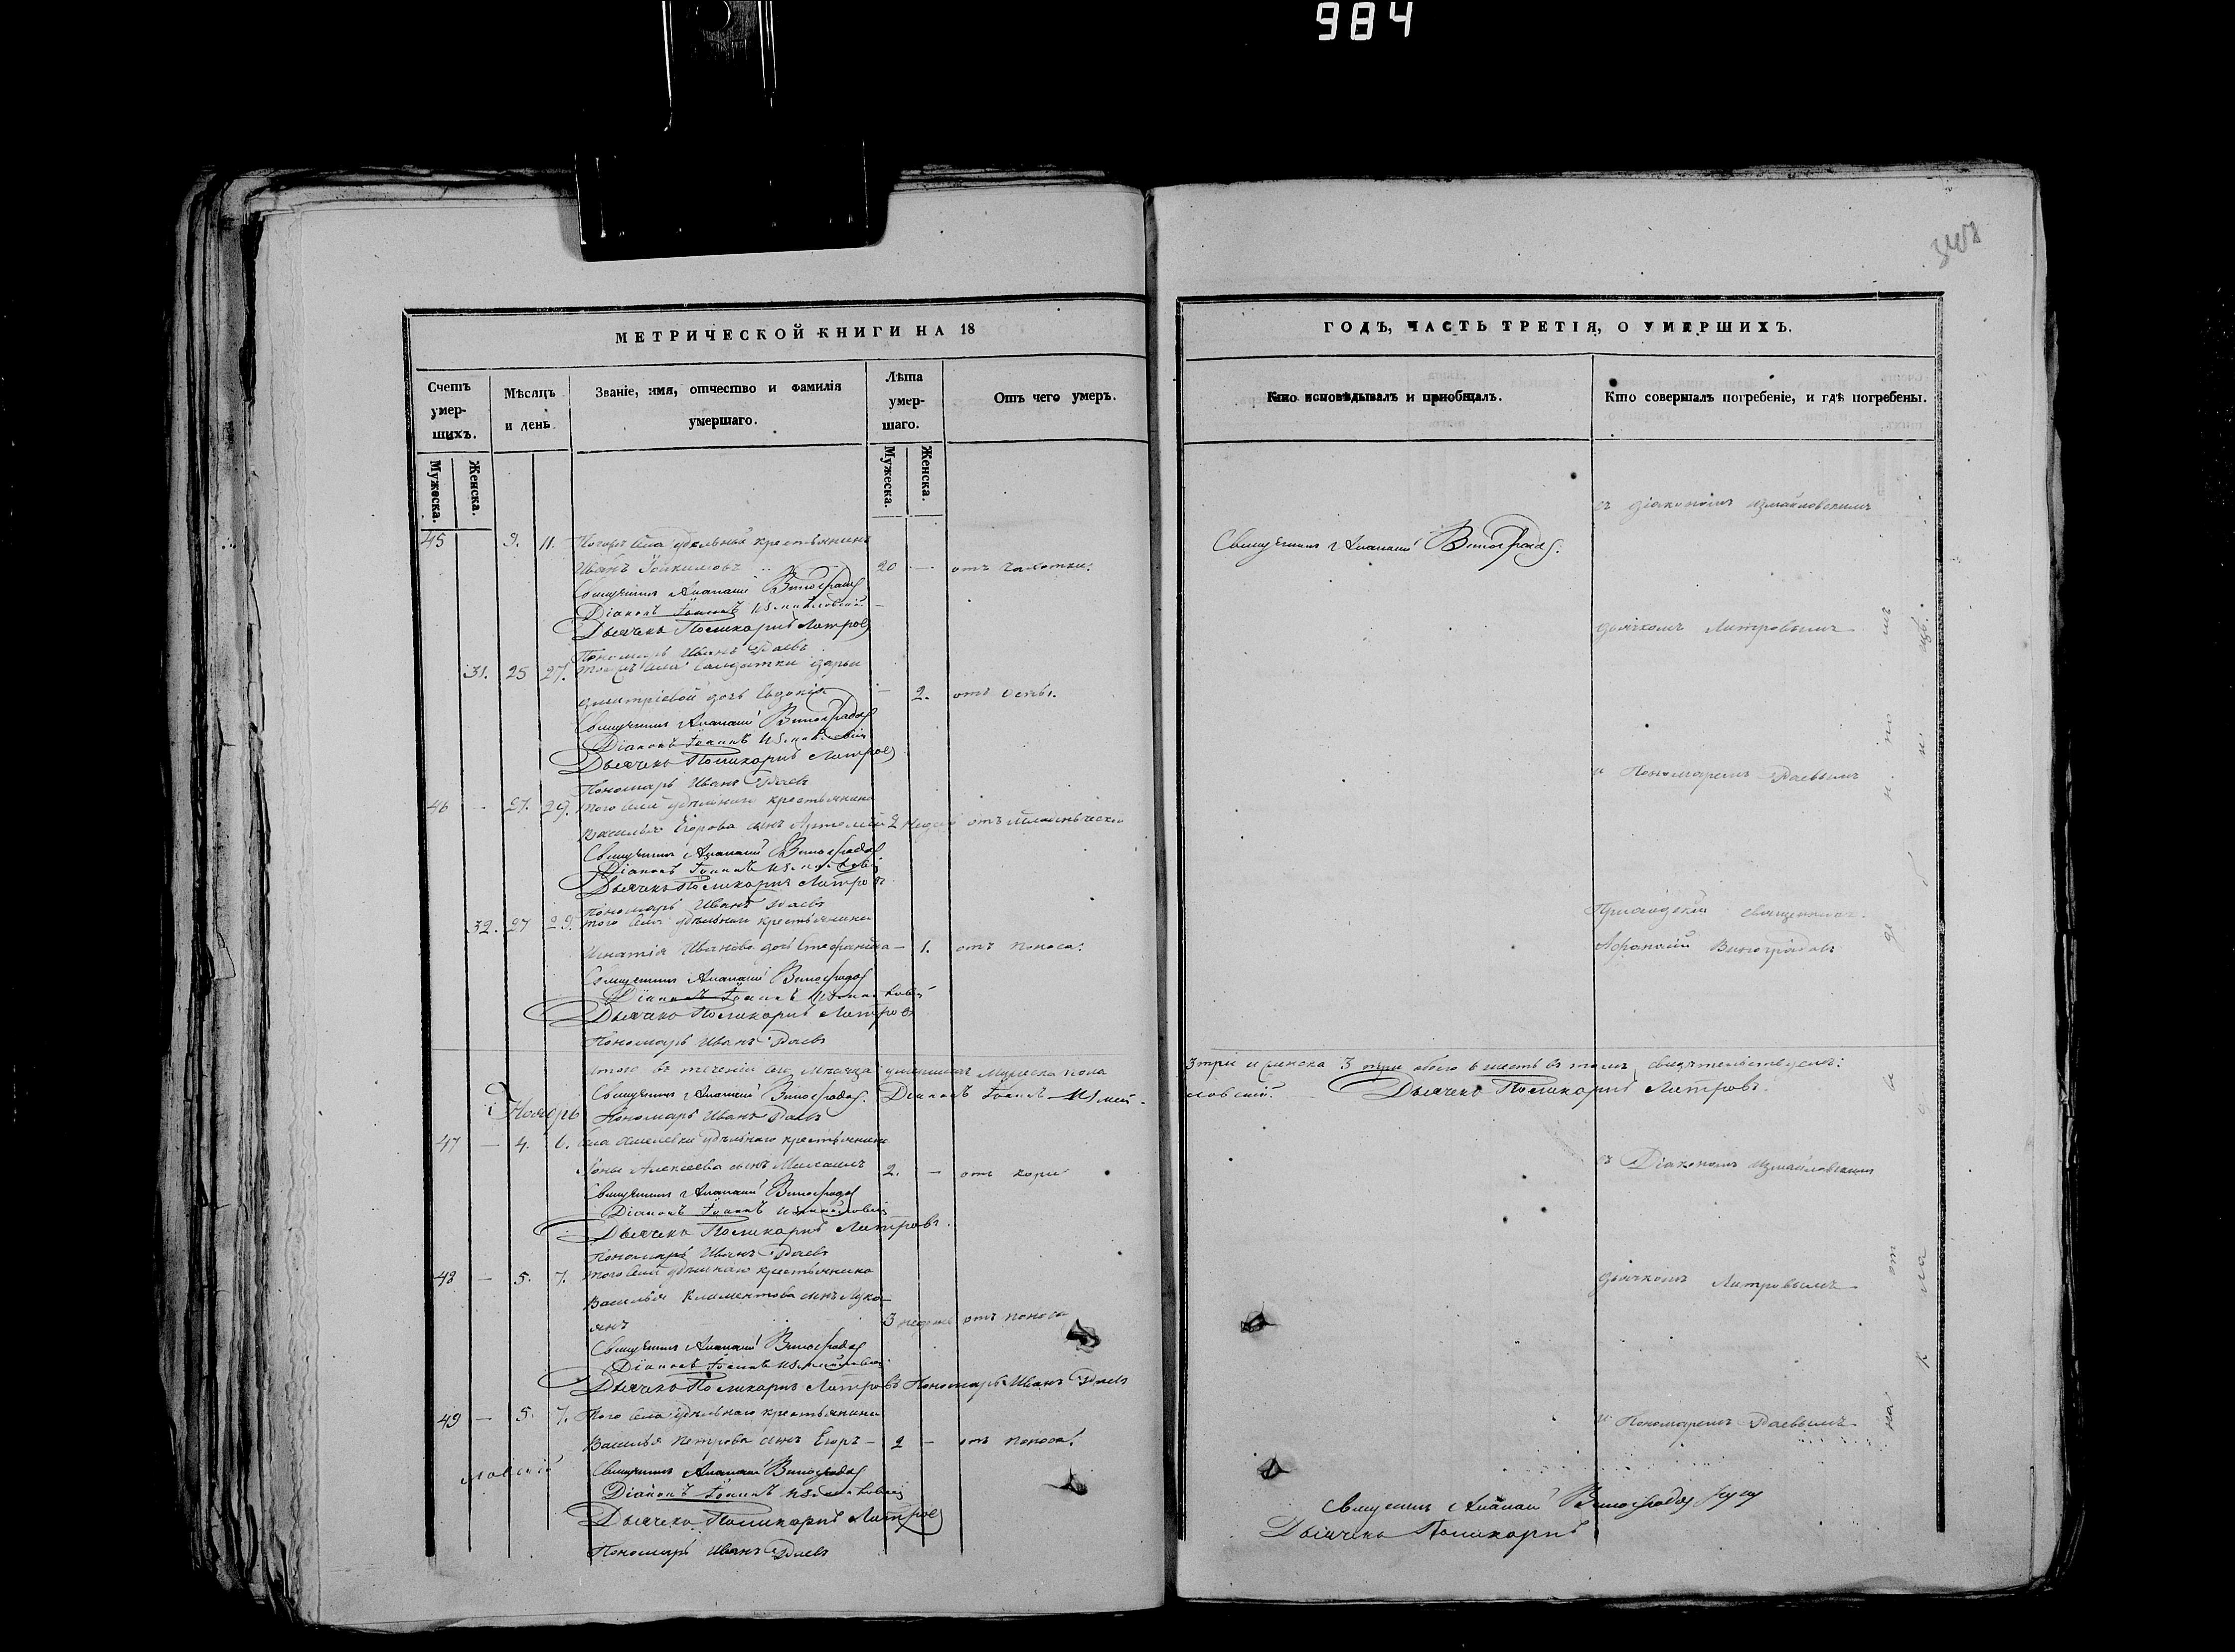 984
3408
МЕТРИЧЕСКОЙ КНИГИ НА 18
Счетъ умер-шихъ.
Мѣсяцъ и день
Званіе, имя, отчество и фамилія умершаго.
Лѣта умер-шаго.
Отъ чего умеръ.
Мужеска.
Женска.
Мужеска.
Женска.
45 9. 11. села удѣльной крестьянинъ
Иванъ 20 — отъ чахотки.
Священникъ Аѳанасій Виноградовъ
Діаконъ Іоаннъ Измайловскій
Дьячекъ Поликарпъ Литровъ
Пономарь Иванъ Раевъ
31. 25 27. села солдатки Дарьи
Димитріевой дочь Евдокія — 2. отъ оспы.
Священникъ Аѳанасій Виноградовъ
Діаконъ Іоаннъ Измайловскій
Дьячекъ Поликарпъ Литровъ
Пономарь Иванъ Раевъ
46 - 27. 29. того села удѣльнаго крестьянина
Василья Егорова сынъ 2 недѣль отъ младенческой
Священникъ Аѳанасій Виноградовъ
Діаконъ Іоаннъ Измайловскій
Дьячекъ Поликарпъ Литровъ
Пономарь Иванъ Раевъ
32. 27 29. того села удѣльнаго крестьянина
Игнатія Иванова дочь Стефанида — 1. отъ поноса.
Священникъ Аѳанасій Виноградовъ
Діаконъ Іоаннъ Измайловскій
Дьячекъ Поликарпъ Литровъ
Пономарь Иванъ Раевъ
Итого въ теченіи сего мѣсяца умершихъ мужеска пола
Священникъ Аѳанасій Виноградовъ. Діаконъ Іоаннъ Измай-
Ноябрь Пономарь Иванъ Раевъ
47 — 4. 6. села удѣльнаго крестьянина
Алексеева сынъ Михаилъ 2. — отъ кори
Священникъ Аѳанасій Виноградовъ
Діаконъ Іоаннъ Измайловскій
Дьячекъ Поликарпъ Литровъ.
Пономарь Иванъ Раевъ
48 — 5. 7. того села удѣльнаго крестьянина
Василья Климентова сынъ Луко-
янъ 3 недѣль отъ поноса
Священникъ Аѳанасій Виноградовъ
Діаконъ Іоаннъ Измайловскій
Дьячекъ Поликарпъ Литровъ Пономарь Иванъ Раевъ
49 — 5. 7. Того села удѣльнаго крестьянина
Василья Петрова сынъ Егоръ — 2 — отъ поноса.
ловскій Священникъ Аѳанасій Виноградовъ
Діаконъ Іоаннъ Измайловскій
Дьячекъ Поликарпъ Литровъ
Пономарь Иванъ Раевъ
ГОДЪ, ЧАСТЬ ТРЕТІЯ, О УМЕРШИХЪ.
Кто исповѣдывалъ и приобщалъ.
Кто совершалъ погребеніе, и гдѣ погребены.
съ діакономъ Измайловскимъ
Священникъ Аѳанасій Виноградовъ.
дьячкомъ Литровымъ
и Пономаремъ Раевымъ
Приходскій священникъ
Афанасій Виноградовъ
3 три и женска 3 три обоего 6 шесть въ томъ свидѣтельствуемъ:
ловскій. Дьячекъ Поликарпъ Литровъ.
съ Діакономъ Измайловскимъ
дьячкомъ Литровымъ
и Пономаремъ Раевымъ
Священникъ Аѳанасій Виноградовъ
Дьячекъ Поликарпъ